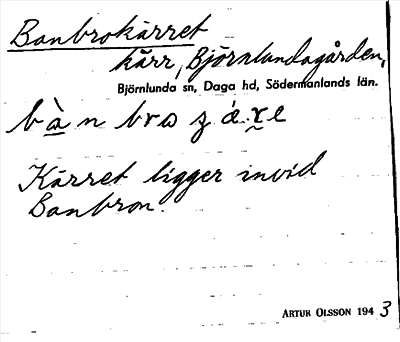 Banbrokärret
kärr, Björnlundagården,
Björnlunda sn, Daga hd, Södermanlands län.
Kärret ligger invid
Banbron.
ARTUR OLSSON 1943